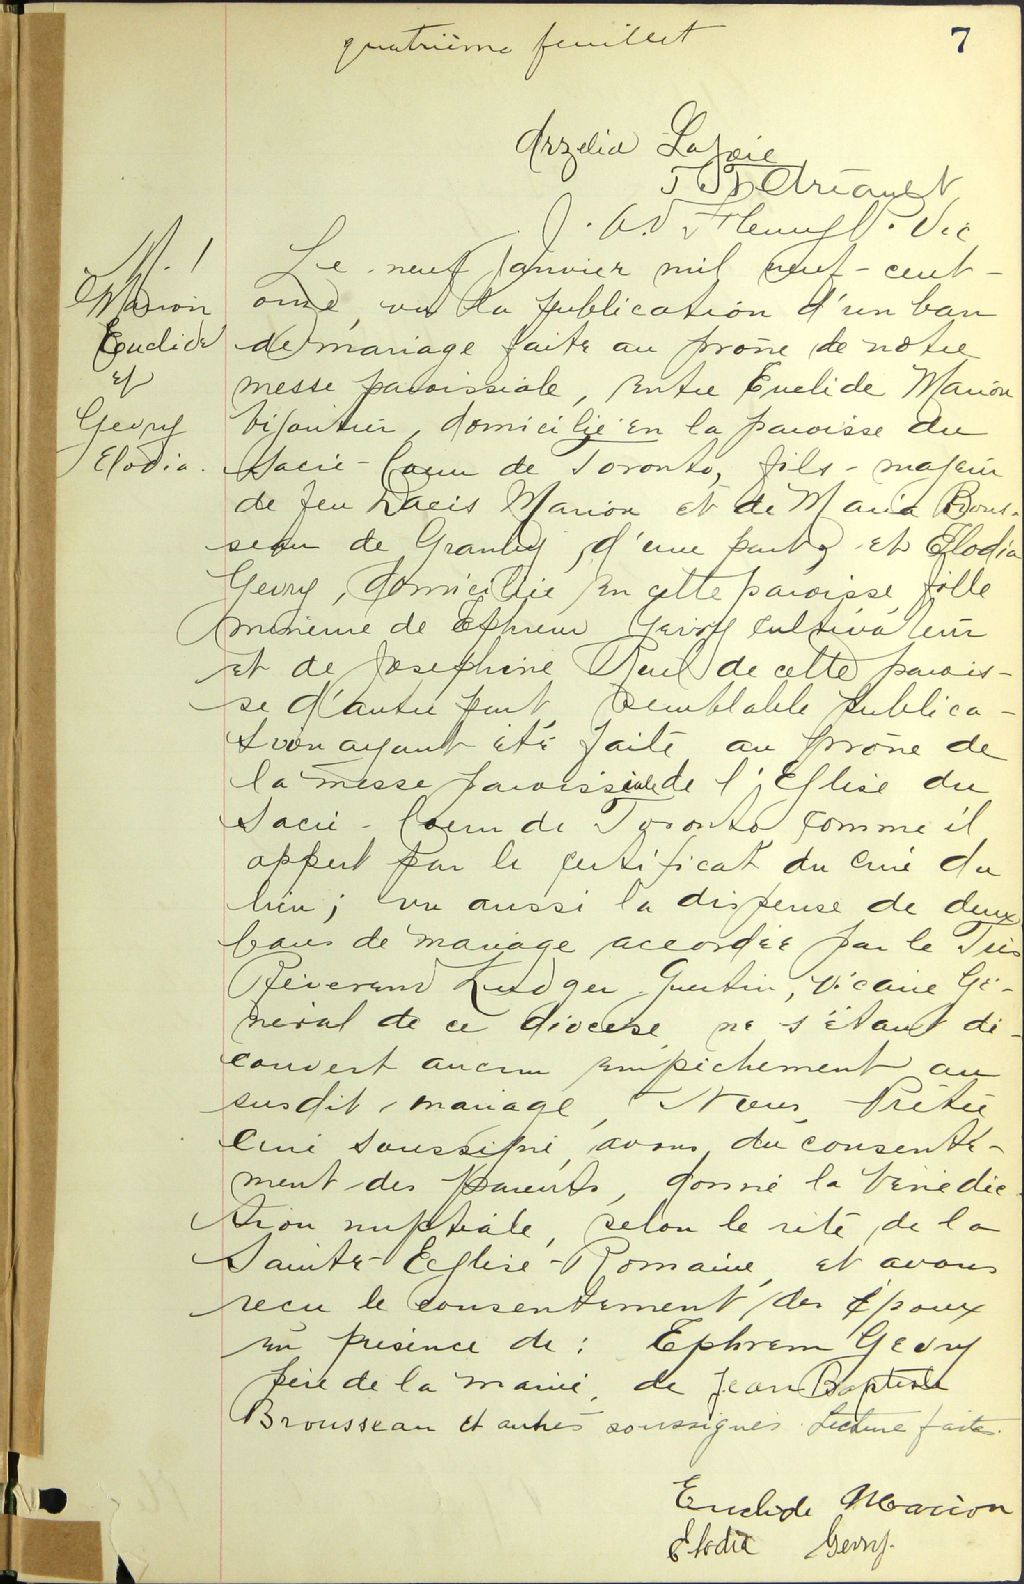 quatrième feuillet
7
Arzelia Lajoie
J. A. Fleury P. Vic
M. 1
Marion
Euclide
et
Gevry
Elodia.
Le neuf Janvier mil neuf-cent-
onze, vu la publication d'un ban
de mariage faite au prône de notre
messe paroissiale, entre Euclide Marion
bijoutier, domicilié en la paroisse du
Sacré-Coeur de Toronto, fils-majeur
de feu Marion et de Maria Brous-
seau de Granby, d'une part, et Elodia
Gevry, domiciliée en cette paroisse fille
mineure de Ephrem Gevry cultivateur
et de Josephine Ruel de cette parois-
se d'autre part, semblable publica-
tion ayant été faite au prône de
la messe paroissiale de l'Eglise du
Sacré-Coeur de Toronto comme il
appert par le certificat du curé du
lieu; vu aussi la dispense de deux
bans de mariage accordée par le Très
Révérend Ludger Guertin, Vicaire Gé-
néral de ce diocèse, ne s'étant dé-
couvert aucun empêchement au
susdit mariage, Nous, Prêtre
Curé soussigné, avons, du consente-
ment des parents, donné la bénédic-
tion nuptiale, selon le rite de la
Sainte-Eglise-Romaine, et avons
reçu le consentement des époux
en présence de: Ephrem Gevry
père de la mariée, de Jean Baptiste
Brousseau et autres soussignés. Lecture faite.
Euclide Marion
Elodia Gevry.